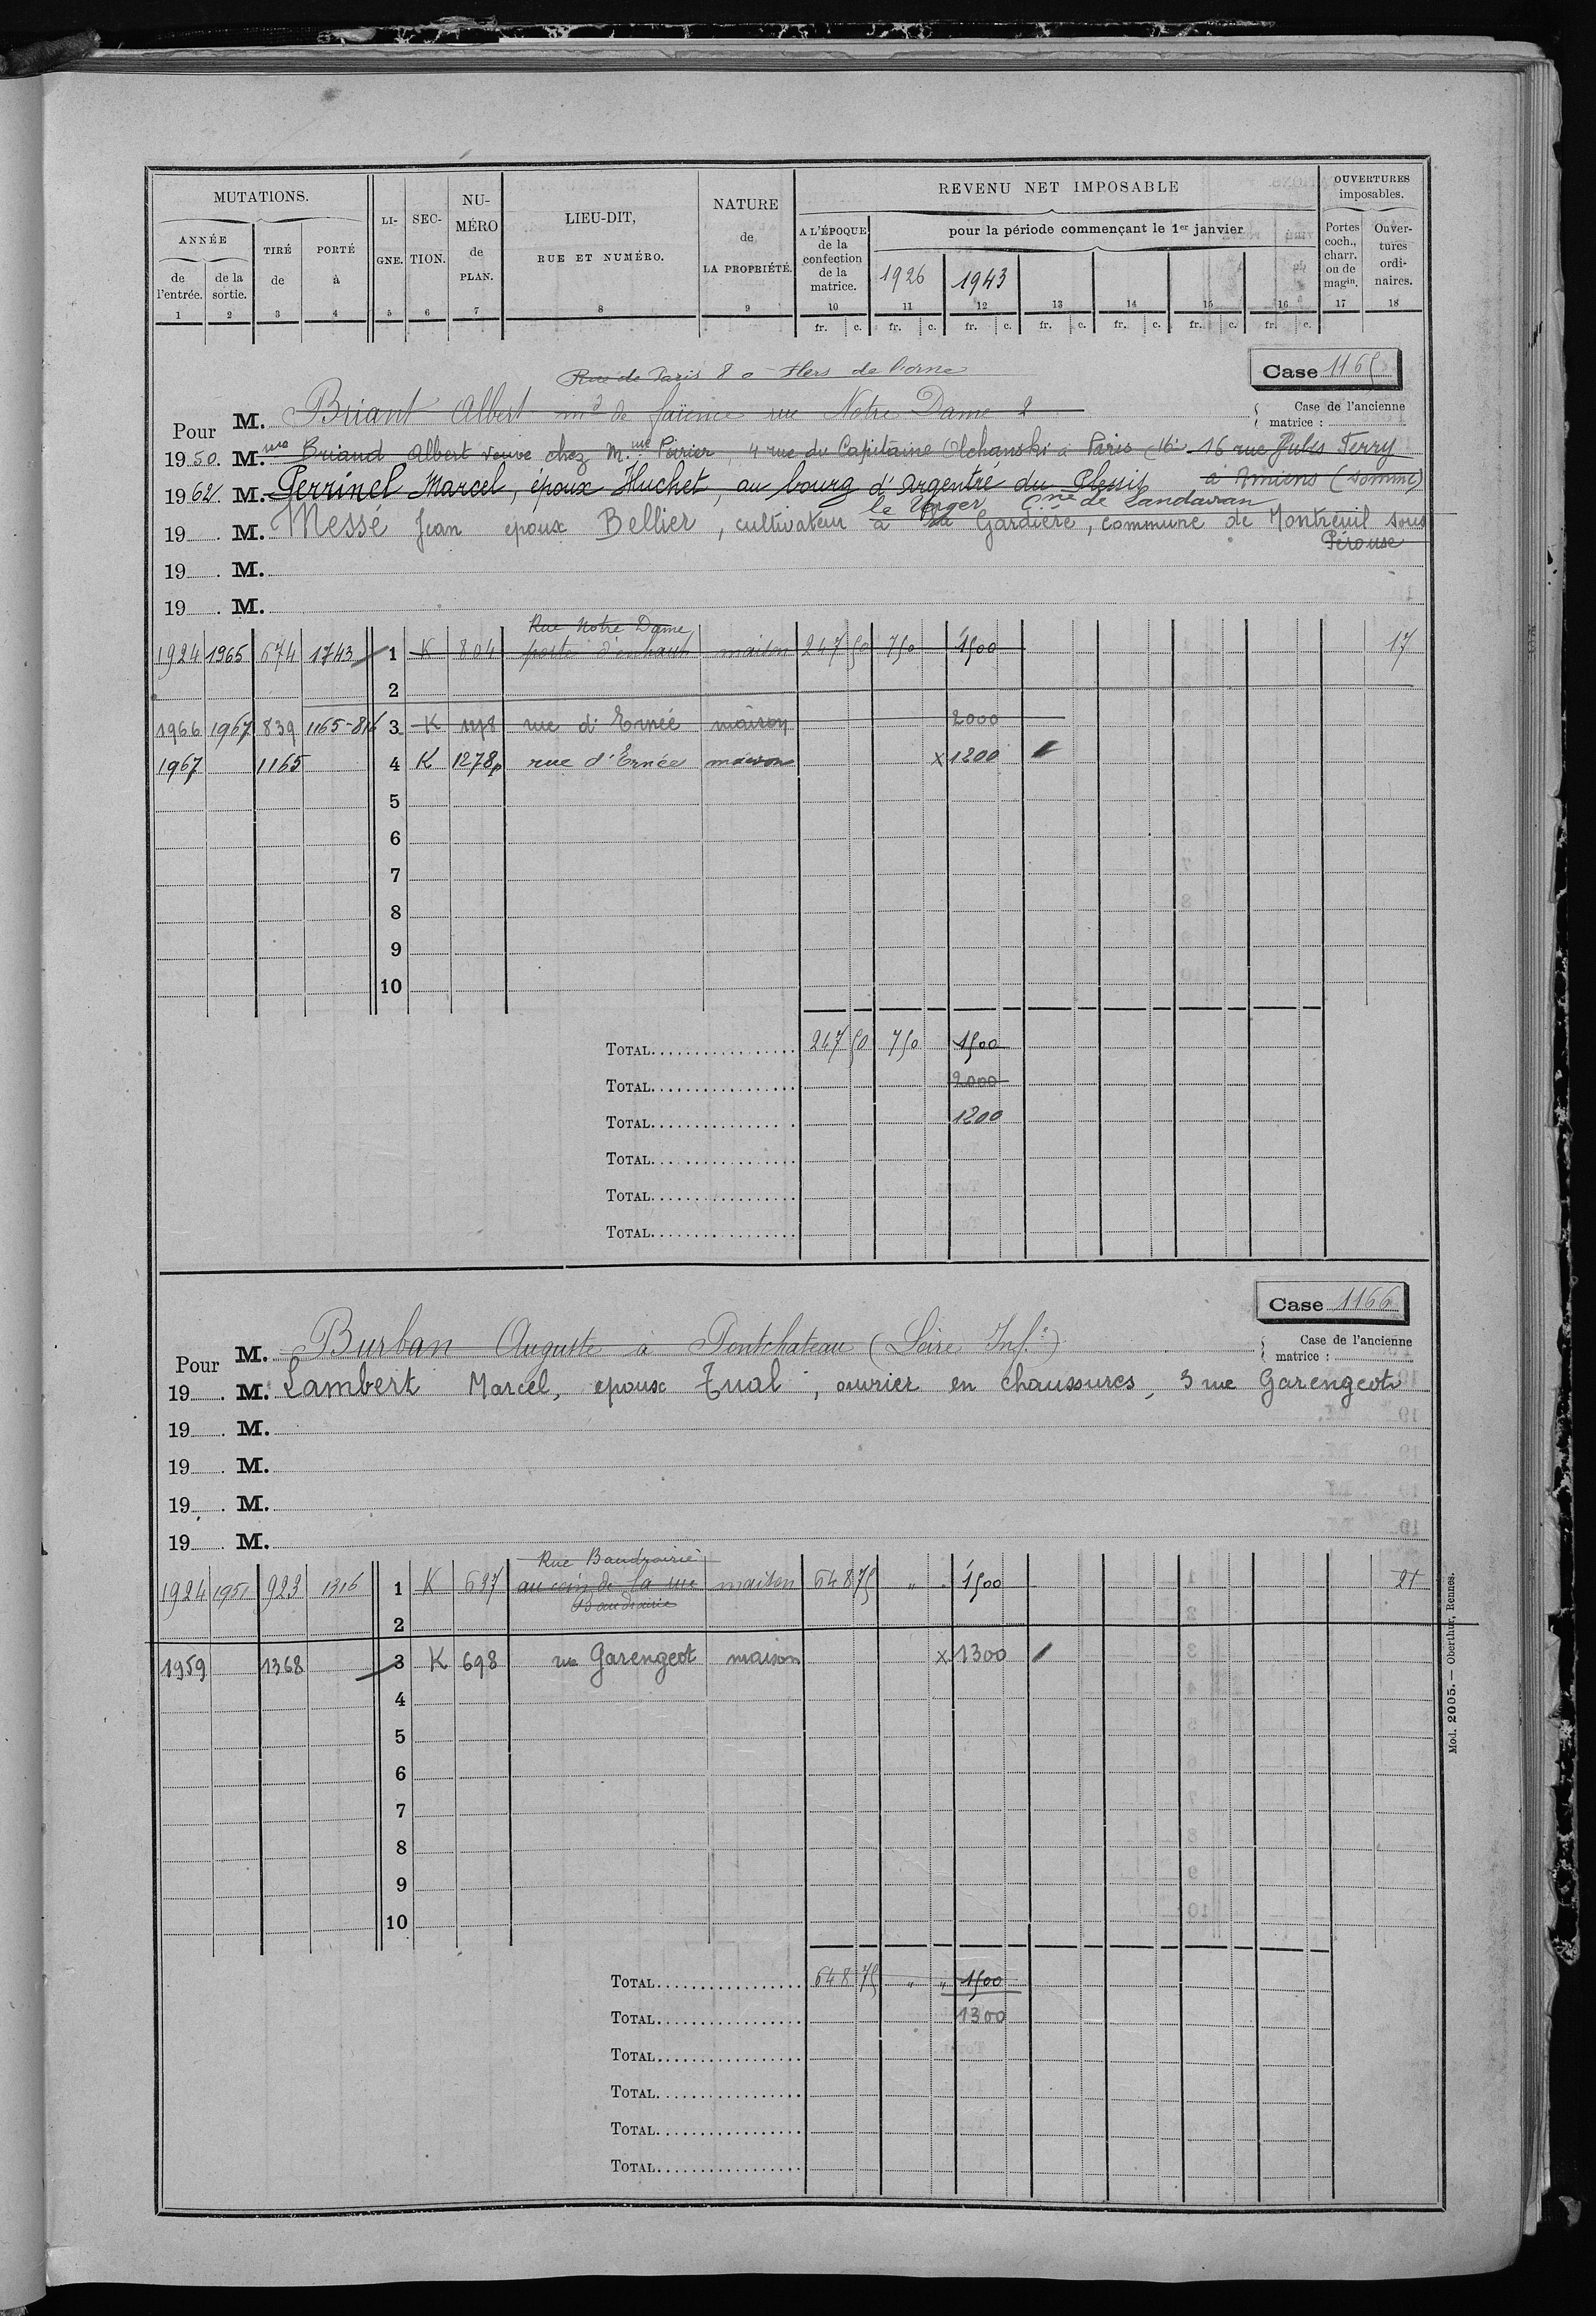 MUTATIONS.
ANNÉE
de l'entrée. 1
de la sortie. 2
TIRÉ de 3
PORTÉ à 4
LIGNE. 5
SECTION. 6
NUMÉRO de PLAN. 7
LIEU-DIT, RUE ET NUMÉRO. 8
NATURE de LA PROPRIÉTÉ. 9
REVENU NET IMPOSABLE
A L'ÉPOQUE de la confection de la matrice. 10
pour la période commençant le 1er janvier
1926 11
1943 12
13 14 15 16
OUVERTURES imposables.
Portes coch., charr. ou de magin. 17
Ouvertures ordinaires. 18
fr. c. fr. c. fr. c. fr. c. fr. c. fr. c. fr. c.
Case 1165
Rue de Paris 80 Flers de l'orne
Pour M. Briant Albert md de faïence rue Notre Dame 2
Case de l'ancienne matrice :
1950. M. Briand Albert veuve chez Mme Poirier 4 rue du Capitaine Olchanski à Paris 16e 16 rue Jules Ferry
à Amiens (Somme)
1962. M. Perrinel Marcel, époux Huchet, au bourg d'Argentré du Plessis
le Verger Cne de Landavran
19 . M. Messé Jean epoux Bellier, cultivateur à la Gardière, commune de Montreuil sous
Pérouse
19 . M.
19 . M.
Rue Notre Dame
1924 1965 674 1743 1 K 804 porte d'enhaut maison 247 50 750 1500 17
2
1966 1967 839 1165-816 3 K 1278 rue d'Ernée maison 2000
1967 1165 4 K 1278p rue d'Ernée maison x 1200
5
6
7
8
9
10
TOTAL 247 50 750 1500
TOTAL 2000
TOTAL 1200
TOTAL
TOTAL
TOTAL
Case 1166
Pour M. Burban Auguste à Pontchateau (Loire Infre)
Case de l'ancienne matrice :
19 . M. Lambert Marcel, epoux Tual, ouvrier en chaussures, 3 rue Garengeot
19 . M.
19 . M.
19 . M.
19 . M.
Rue Baudrairie
1924 1951 923 1316 1 K 697 au coin de la rue maison 648 75 " " 1500 21
Baudrairie
2
1959 1368 3 K 698 rue Garengeot maison x 1300
4
5
6
7
8
9
10
TOTAL 648 75 " " 1500
TOTAL 1300
TOTAL
TOTAL
TOTAL
TOTAL
Mod. 2005. — Oberthur, Rennes.